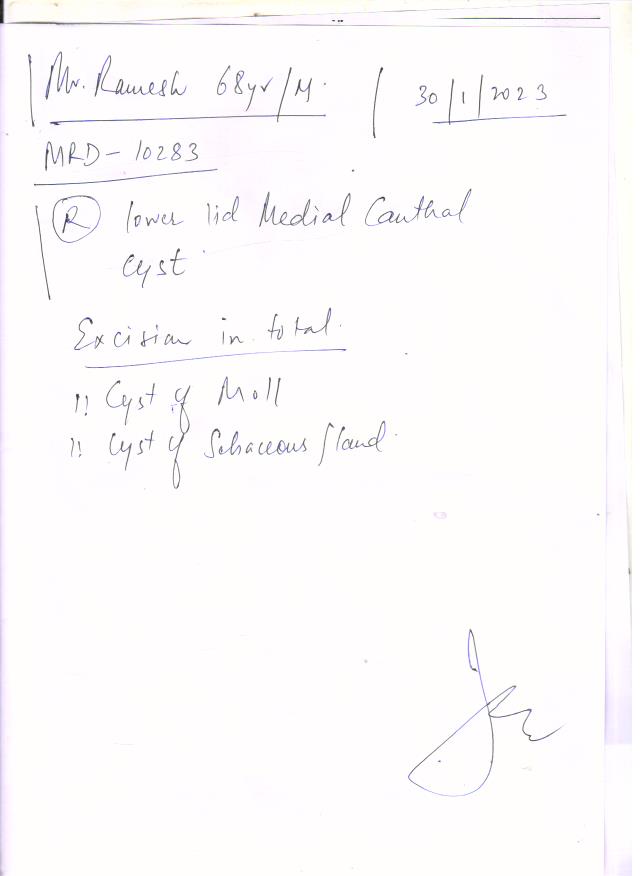 Mr. Ramesh 68yr/M. 30/1/2023
MRD - 10283
(R) lower lid Medial Canthal
Cyst
Excision in total.
?? Cyst of Moll
?? Cyst of Sebaceous gland.